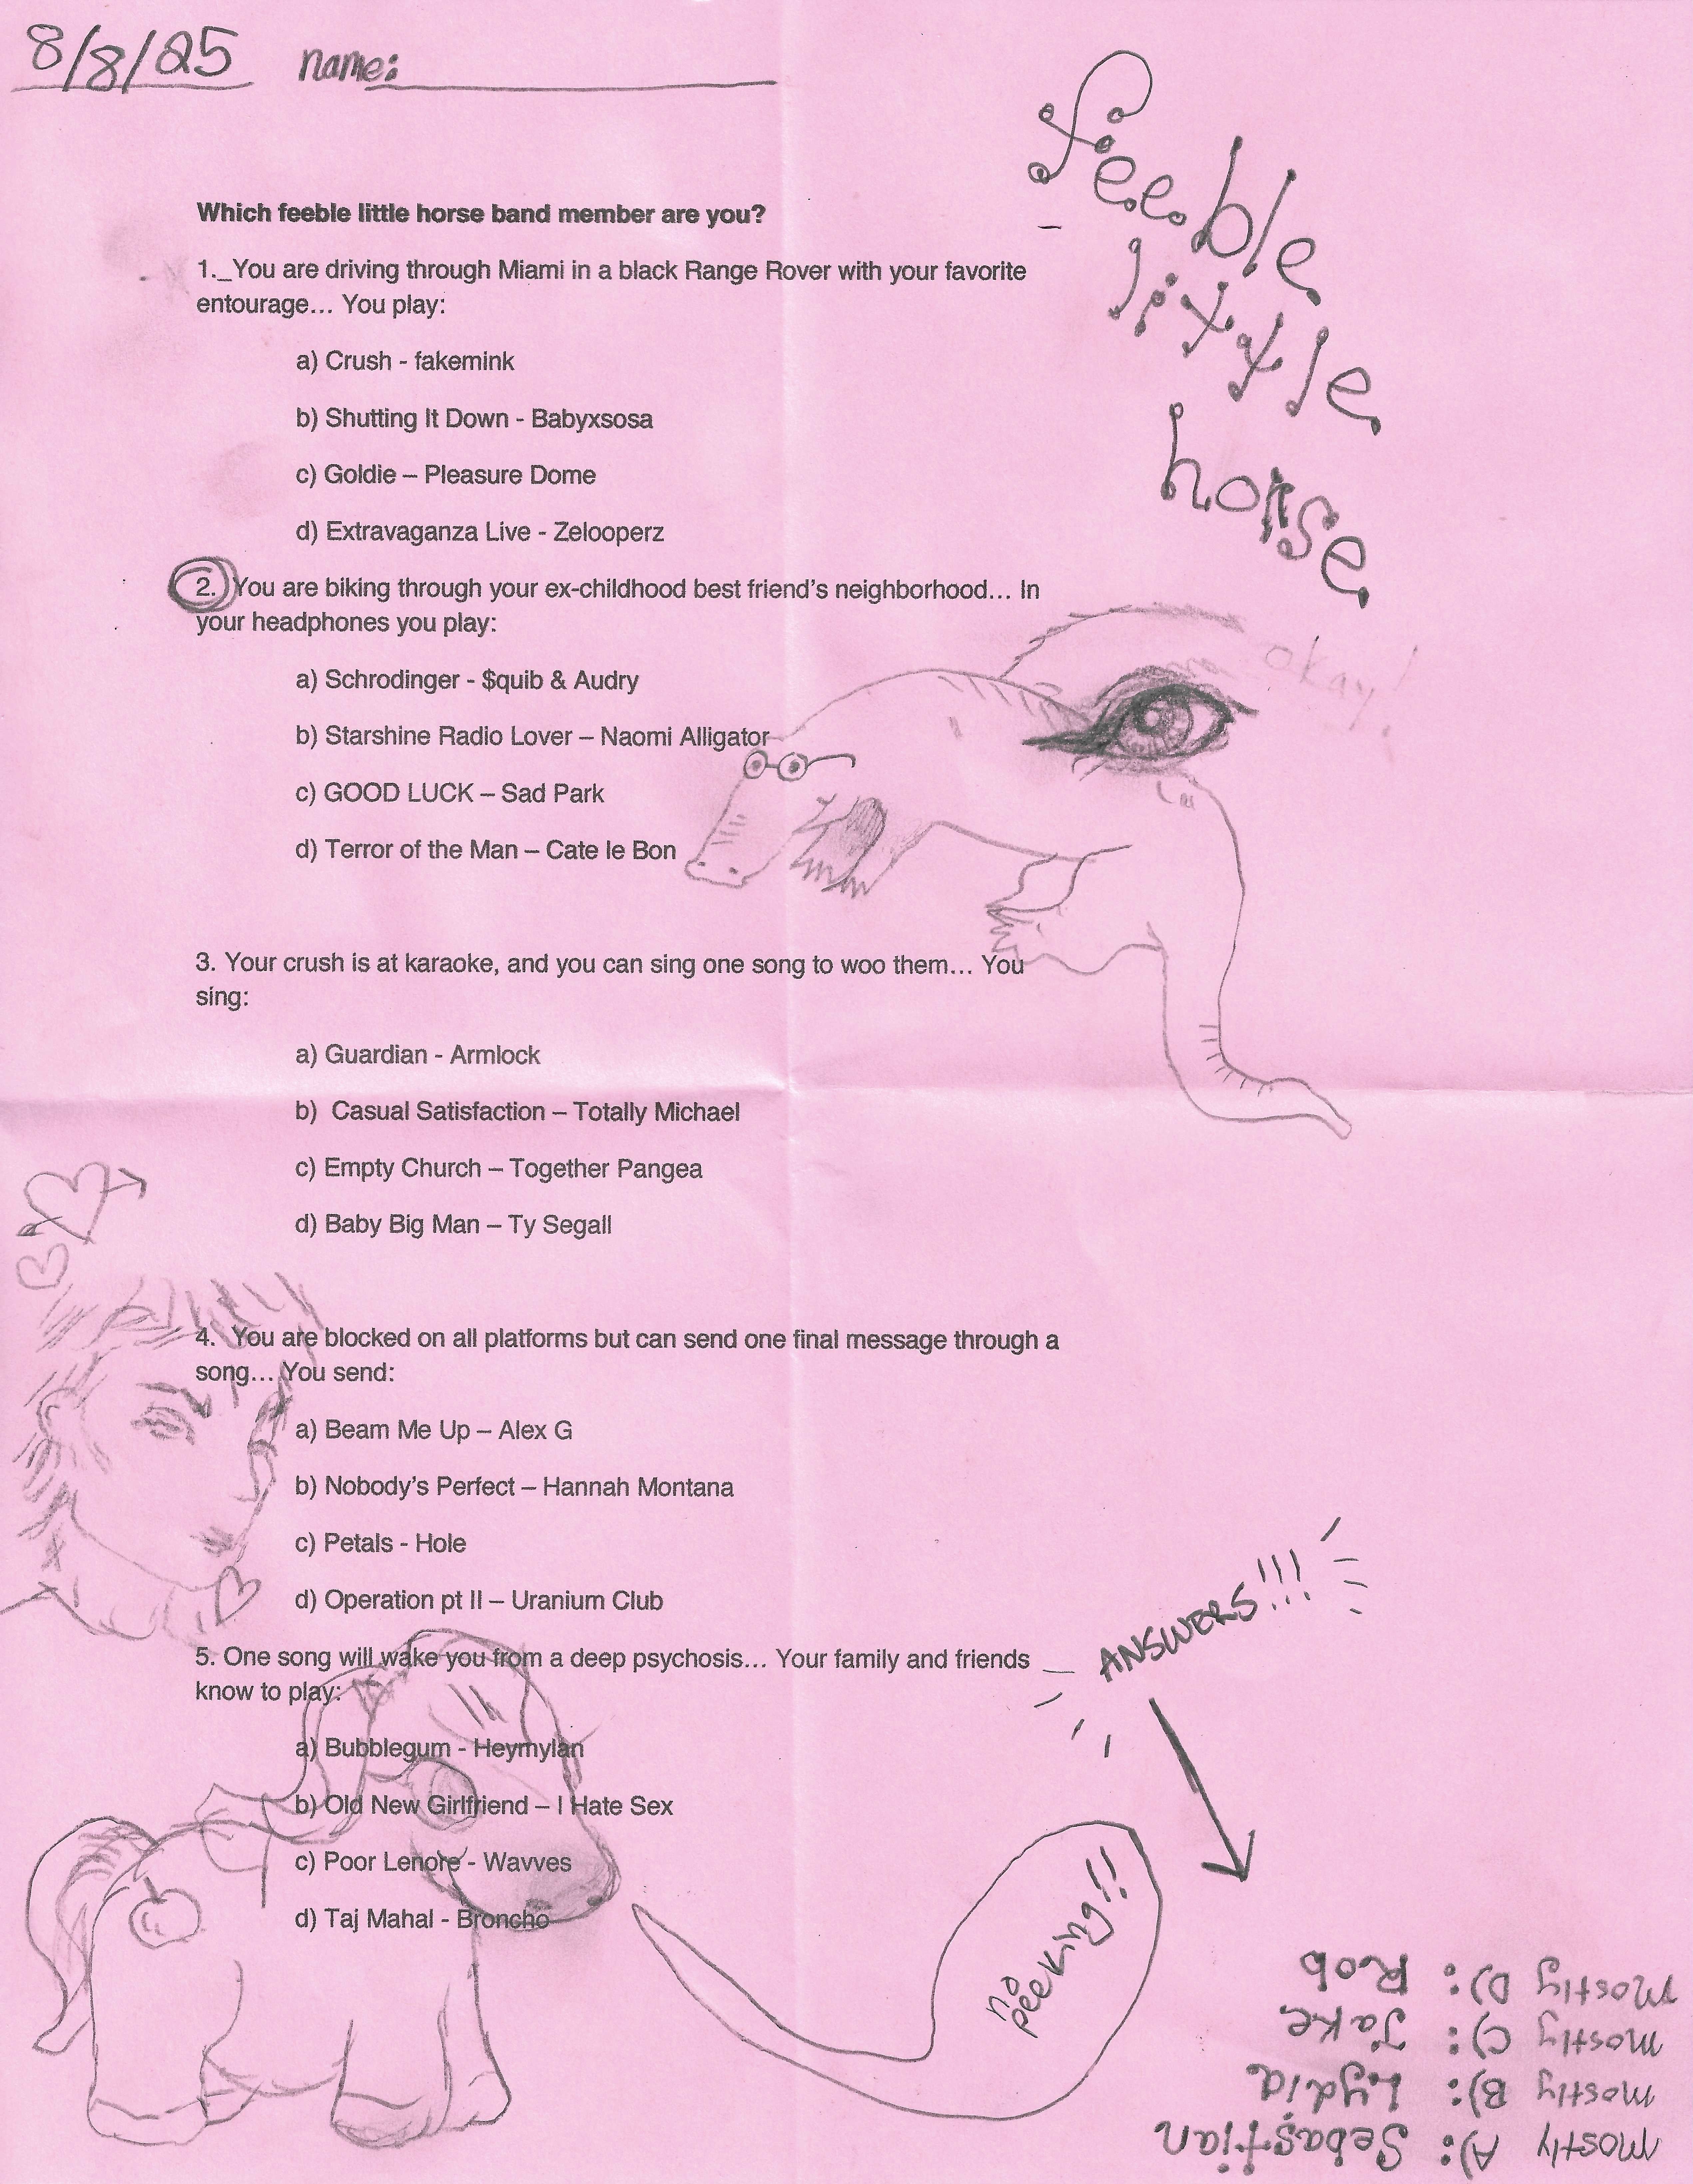 8/8/25 name:
feeble
little
horse
Which feeble little horse band member are you?
1. You are driving through Miami in a black Range Rover with your favorite
entourage... You play:
a) Crush - fakemink
b) Shutting It Down - Babyxsosa
c) Goldie – Pleasure Dome
d) Extravaganza Live - Zelooperz
2. You are biking through your ex-childhood best friend's neighborhood... In
your headphones you play:
okay!
a) Schrodinger - $quib & Audry
b) Starshine Radio Lover – Naomi Alligator
c) GOOD LUCK – Sad Park
d) Terror of the Man – Cate le Bon
3. Your crush is at karaoke, and you can sing one song to woo them... You
sing:
a) Guardian - Armlock
b) Casual Satisfaction – Totally Michael
c) Empty Church – Together Pangea
d) Baby Big Man – Ty Segall
4. You are blocked on all platforms but can send one final message through a
song... You send:
a) Beam Me Up – Alex G
b) Nobody's Perfect – Hannah Montana
c) Petals - Hole
d) Operation pt II – Uranium Club
5. One song will wake you from a deep psychosis... Your family and friends
know to play:
a) Bubblegum - Heymylan
b) Old New Girlfriend – I Hate Sex
c) Poor Lenore - Wavves
d) Taj Mahal - Broncho
ANSWERS!!!
no
peeking!!
Mostly A): Sebastian
Mostly B): Lydia
Mostly C): Jake
Mostly D): Rob